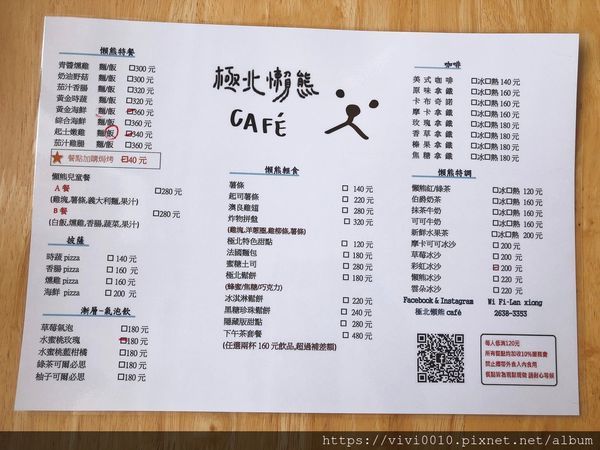 懶熊特餐
青醬燻雞 麵/飯 □300 元
奶油野菇 麵/飯 □300 元
茄汁香腸 麵/飯 □320 元
黃金時蔬 麵/飯 □320 元
黃金海鮮 麵/飯 □360 元
綜合海鮮 麵/飯 □360 元
起士嫩雞 麵/飯 □340 元
茄汁雞腿 麵/飯 □360 元
★ 餐點加購焗烤 □40 元
懶熊兒童餐
A 餐 □280 元
(雞塊,薯條,義大利麵,果汁)
B 餐 □280 元
(白飯,燻雞,香腸,蔬菜,果汁)
披薩
時蔬 pizza □ 140 元
香腸 pizza □ 160 元
燻雞 pizza □ 160 元
海鮮 pizza □ 200 元
漸層-氣泡飲
草莓氣泡 □180 元
水蜜桃玫瑰 □180 元
水蜜桃藍柑橘 □180 元
綠茶可爾必思 □180 元
柚子可爾必思 □180 元
極北懶熊
CAFÉ
懶熊輕食
薯條 □ 140 元
起司薯條 □ 220 元
澳良雞翅 □ 200 元
炸物拼盤 □ 320 元
(雞塊,洋蔥圈,雞柳條,薯條)
極北特色甜點
法國麵包 □ 180 元
蜜糖土司 □ 280 元
極北鬆餅 □ 180 元
(蜂蜜/焦糖/巧克力)
冰淇淋鬆餅 □ 220 元
黑糖珍珠鬆餅 □ 240 元
隱藏版甜點 □ 280 元
下午茶套餐 □ 480 元
(任選兩杯 160 元飲品,超過補差額)
咖啡
美式咖啡 □冰□熱 140 元
原味拿鐵 □冰□熱 160 元
卡布奇諾 □冰□熱 160 元
摩卡拿鐵 □冰□熱 160 元
玫瑰拿鐵 □冰□熱 160 元
香草拿鐵 □冰□熱 160 元
榛果拿鐵 □冰□熱 160 元
焦糖拿鐵 □冰□熱 160 元
懶熊特調
懶熊紅/綠茶 □冰□熱 120 元
伯爵奶茶 □冰□熱 160 元
抹茶牛奶 □冰□熱 160 元
可可牛奶 □冰□熱 160 元
新鮮水果茶 □冰□熱 200 元
摩卡可可冰沙 □ 200 元
草莓冰沙 □ 200 元
彩虹冰沙 □ 200 元
懶熊冰沙 □ 200 元
雲朵冰沙 □ 220 元
Facebook & Instagram Wi Fi-Lan xiong
極北懶熊 café 2638-3353
每人低消120元
所有餐點均加收10%服務費
禁止攜帶外食入內食用
餐點皆為現點現做 請耐心等候
https://vivi0010.pixnet.net/album